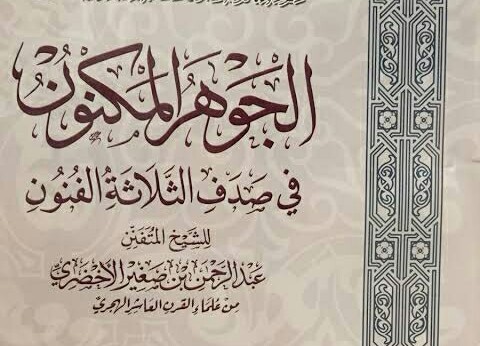 الجَوْهَرُ المَكْنُونُ
في صَدَفِ الثَّلَاثَةِ الفُنُونِ
لِلشَّيْخِ المُتَفَنِّنِ
عَبْدِ الرَّحْمَنِ بْنِ صَغِيرِ الأَخْضَرِيِّ
مِنْ عُلَمَاءِ القَرْنِ العَاشِرِ الهِجْرِيِّ